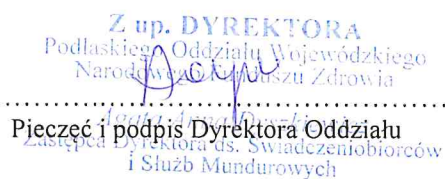 Z up. DYREKTORA
Podlaskiego Oddziału Wojewódzkiego
Narodowego Funduszu Zdrowia
Pieczęć i podpis Dyrektora Oddziału
Zastępca Dyrektora ds. Świadczeniobiorców
i Służb Mundurowych